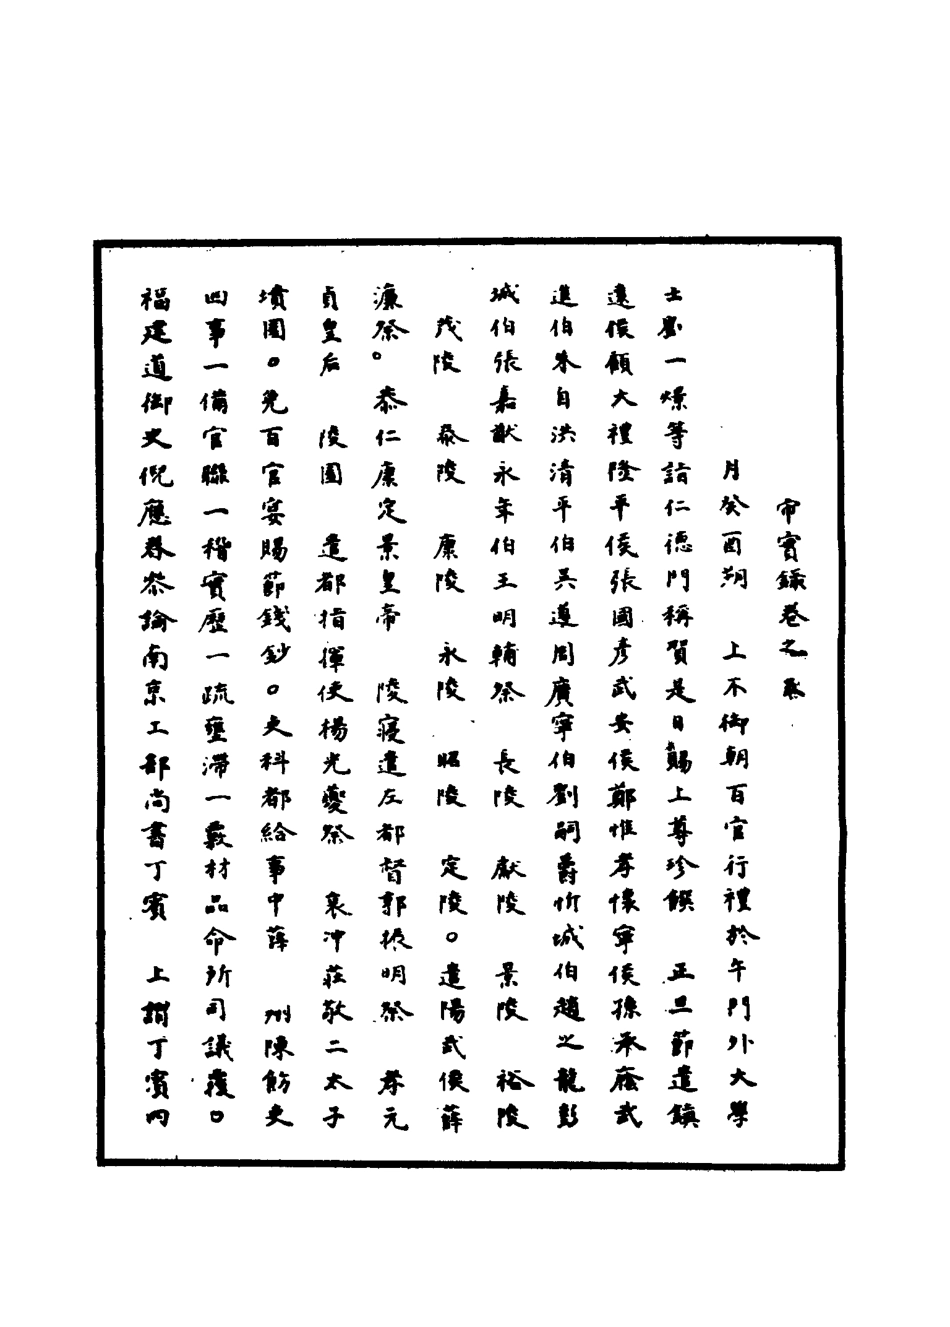 帝實錄卷之
月癸酉朔　上不御朝百官行禮於午門外大學
士劉一燝等詣仁德門稱賀是日賜上尊珍饌　正旦節遣鎮
遠侯顧大禮隆平侯張國彥武安侯鄭惟孝懷寧侯孫承廕武
進伯朱自洪清平伯吳遵周廣寧伯劉嗣爵忻城伯趙之龍彭
城伯張嘉猷永年伯王明輔祭　長陵　獻陵　景陵　裕陵
茂陵　泰陵　康陵　永陵　昭陵　定陵。遣陽武侯薛
濂祭。　恭仁康定景皇帝　陵寢遣左都督郭振明祭　孝元
貞皇后　陵園　遣都指揮使楊光夔祭　哀冲莊敬二太子
墳園。免百官宴賜節錢鈔。吏科都給事中薛　州陳飭吏
四事一備官聯一稽實歷一疏壅滯一覈材品命所司議覆。
福建道御史倪應眷叅論南京工部尚書丁賓　上謂丁賓向